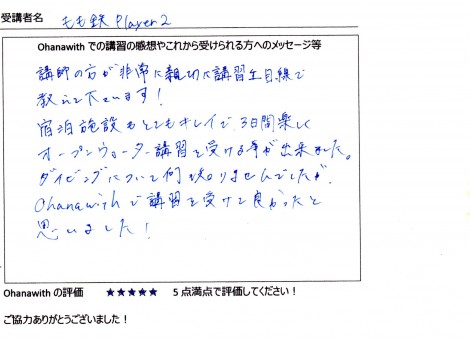 受講者名 もも鉄 Player2
Ohanawith での講習の感想やこれから受けられる方へのメッセージ等
講師の方が非常に親切に講習生目線で
教えて下さいます!
宿泊施設もとてもキレイで、3日間楽しく
オープンウォーター講習を受ける事が出来ました。
ダイビングについて何も知りませんでしたが、
Ohanawithで講習を受けて良かったと
思いました!
Ohanawith の評価 ★★★★★ 5点満点で評価してください!
ご協力ありがとうございました!